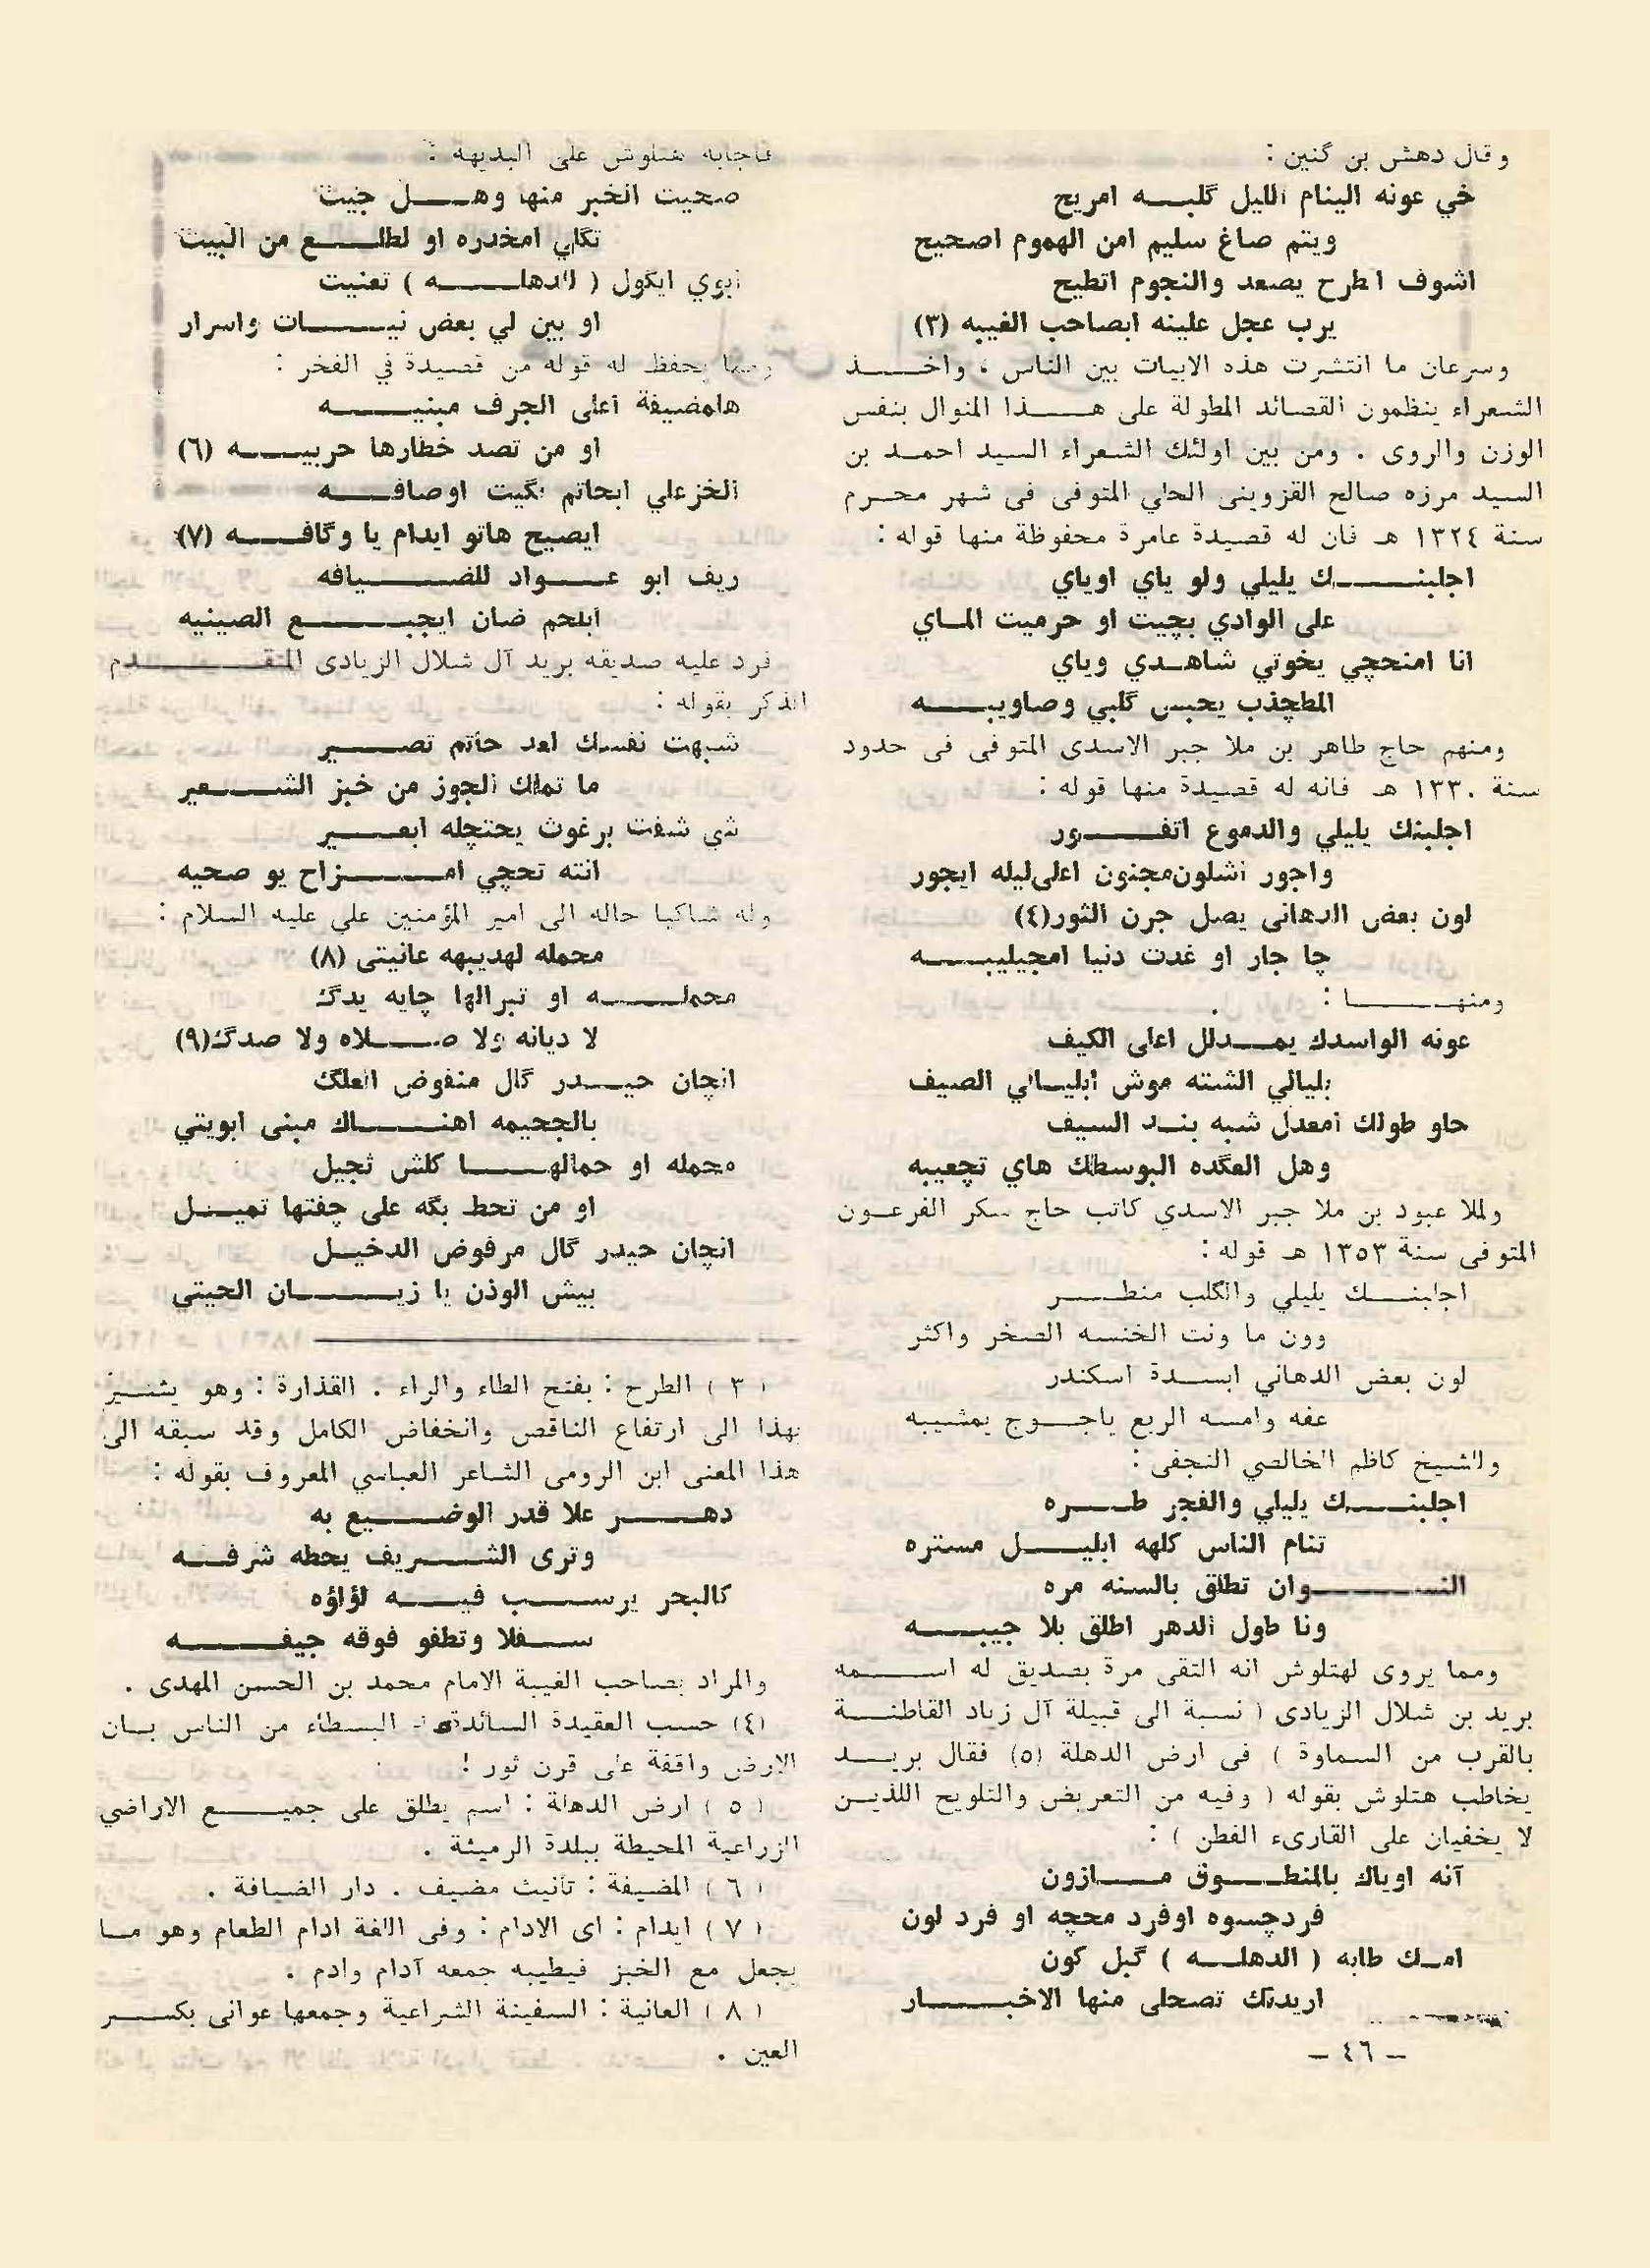 وقال دهش بن گنين :
خي عونه الينام الليل گلبه امريح
ويتم صاغ سليم امن الهموم اصحيح
اشوف اطرح يصعد والنجوم اتطيح
يرب عجل علينه ابصاحب الغيبه (٣)
وسرعان ما انتشرت هذه الابيات بين الناس ، واخذ
الشعراء ينظمون القصائد المطولة على هذا المنوال بنفس
الوزن والروى . ومن بين اولئك الشعراء السيد احمد بن
السيد مرزه صالح القزوينى الحلي المتوفى فى شهر محرم
سنة ١٣٢٤ هـ فان له قصيدة عامرة محفوظة منها قوله :
اجلبنك يليلي ولو ياي اوياي
على الوادي بچيت او حرميت الماي
انا امنحچي يخوتي شاهدي وياي
المطچذب يحبس گلبي وصاويبه
ومنهم حاج طاهر بن ملا جبر الاسدى المتوفى فى حدود
سنة ١٣٣٠ هـ فانه له قصيدة منها قوله :
اجلبنك يليلي والدموع اتفور
واجور اشلون مجنون اعلى ليله ايجور
لون بعض الدهانى يصل جرن الثور (٤)
چا جار او غدت دنيا امجيليبه
ومنها :
عونه الواسدك يمدلل اعلى الكيف
بليالي الشته موش ابليالي الصيف
حاو طولك امعدل شبه بند السيف
وهل العگده البوسطك هاي تچعيبه
وللملا عبود بن ملا جبر الاسدي كاتب حاج سكر الفرعون
المتوفى سنة ١٣٥٣ هـ قوله :
اجلبنك يليلي والگلب منطر
وون ما ونت الخنسه الصخر واكثر
لون بعض الدهاني ابسدة اسكندر
عفه وامسه الربع ياجوج يمشيبه
وللشيخ كاظم الخالصي النجفى :
اجلبنك يليلي والفجر طره
تنام الناس كلهه ابليل مستره
النسوان تطلق بالسنه مره
ونا طول الدهر اطلق بلا جيبه
ومما يروى لهتلوش انه التقى مرة بصديق له اسمه
بريد بن شلال الزيادى ( نسبة الى قبيلة آل زياد القاطنة
بالقرب من السماوة ) فى ارض الدهلة (٥) فقال بريد
يخاطب هتلوش بقوله ( وفيه من التعريض والتلويح اللذين
لا يخفيان على القارىء الفطن ) :
آنه اوياك بالمنطوق مازون
فردچسوه اوفرد محچه او فرد لون
امك طابه ( الدهله ) گبل كون
اريدنك تصحلى منها الاخبار
– ٤٦ –
فاجابه هتلوش على البديهه :
صحيت الخبر منها وهل جيت
تگلي امخدره او لطلع من البيت
ابوي ايگول ( الدهله ) تعنيت
او بين لي بعض نيات واسرار
ومما يحفظ له قوله من قصيدة في الفخر :
هامضيفة اعلى الجرف مبنيه
او من تصد خطارها حربيه (٦)
الخزعلي ابحاتم بگيت اوصافه
ايصيح هاتو ايدام يا وگافه (٧)
ريف ابو عواد للضيافه
ابلحم ضان ايجبع الصينيه
فرد عليه صديقه بريد آل شلال الزيادى المتقدم
الذكر بقوله :
شبهت نفسك لعد حاتم تصير
ما تملك الجوز من خبز الشعير
شي شفت برغوث يحتچله ابعير
انته تحچي امزاح يو صحيه
وله شاكيا حاله الى امير المؤمنين علي عليه السلام :
محمله لهديبهه عانيتى (٨)
محمله او تبرالها چايه يدگ
لا ديانه ولا صلاه ولا صدگ (٩)
انچان حيدر گال منفوض العلگ
بالجحيمه اهناك مبنى ابويتي
محمله او حمالها كلش ثجيل
او من تحط بگه على چفتها تميل
انچان حيدر گال مرفوض الدخيل
بيش الوذن يا زيان الحيتي
( ٣ ) الطرح : بفتح الطاء والراء . القذارة : وهو يشير
بهذا الى ارتفاع الناقص وانخفاض الكامل وقد سبقه الى
هذا المعنى ابن الرومى الشاعر العباسي المعروف بقوله :
دهر علا قدر الوضيع به
وترى الشريف يحطه شرفه
كالبحر يرسب فيه لؤلؤه
سفلا وتطفو فوقه جيفه
والمراد بصاحب الغيبة الامام محمد بن الحسن المهدى .
(٤) حسب العقيدة السائدة البسطاء من الناس بان
الارض واقفة على قرن ثور !
( ٥ ) ارض الدهلة : اسم يطلق على جميع الاراضي
الزراعية المحيطة ببلدة الرميثة .
( ٦ ) المضيفة : تأنيث مضيف . دار الضيافة .
( ٧ ) ايدام : اى الادام : وفى اللغة ادام الطعام وهو ما
يجعل مع الخبز فيطيبه جمعه آدام وادم .
( ٨ ) العانية : السفينة الشراعية وجمعها عوانى بكسر
العين .